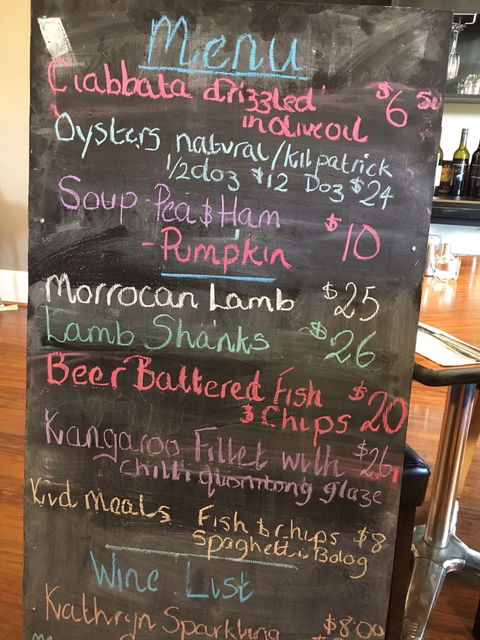 Menu
Ciabbata drizzled
in olive oil $6 50
Oysters natural/kilpatrick
1/2 doz $12 Doz $24
Soup - Pea & Ham
- Pumpkin $10
Morrocan Lamb $25
Lamb Shanks $26
Beer Battered Fish
& Chips $20
Kangaroo Fillet with $26
chilli quontong glaze
Kid Meals Fish & chips $8
Spaghetti Bolog
Wine List
Kathryn Sparkling $8.00